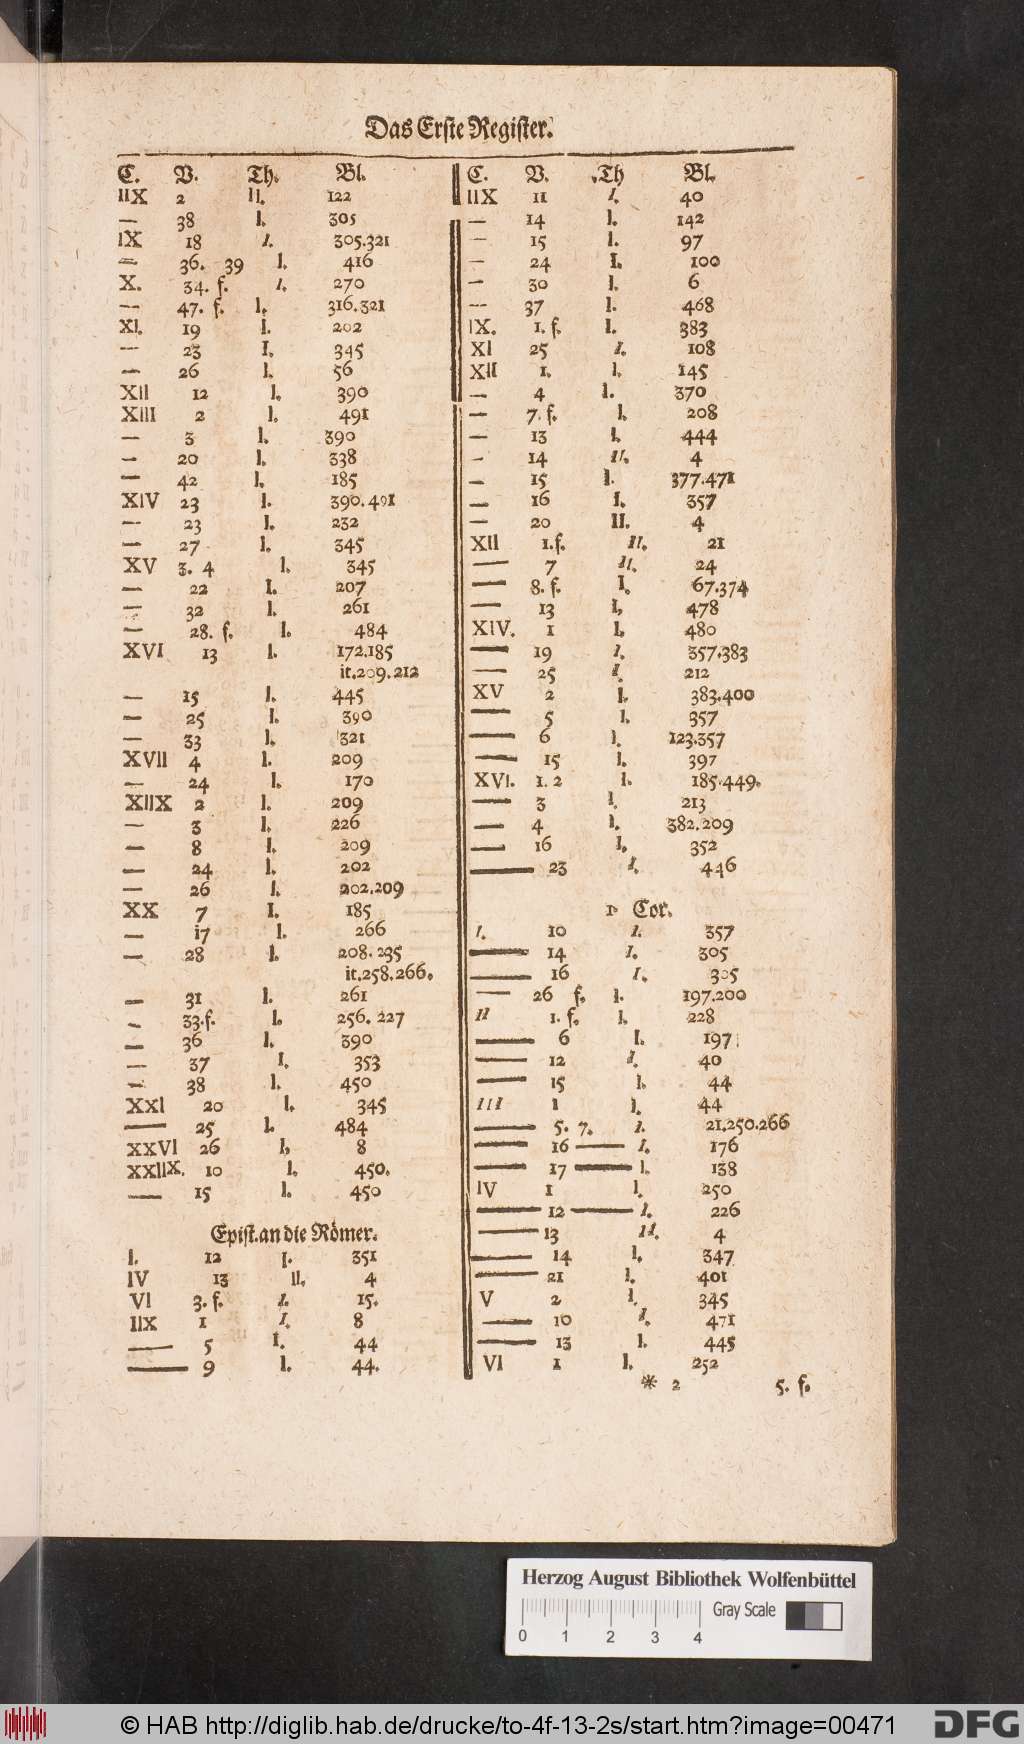 Das Erste Register.
C. V. Th. Bl.
IIX 2 II. 122
— 38 I. 305
IX 18 I. 305.321
— 36. 39 I. 416
X. 34. f. I. 270
— 47. f. I. 316.321
XI. 19 I. 202
— 23 I. 345
— 26 I. 56
XII 12 I. 390
XIII 2 I. 491
— 3 I. 390
— 20 I. 338
— 42 I. 185
XIV 23 I. 390.491
— 23 I. 232
— 27 I. 345
XV 3. 4 I. 345
— 22 I. 207
— 32 I. 261
— 28. f. I. 484
XVI 13 I. 172.185
it.209.212
— 15 I. 445
— 25 I. 390
— 33 I. 321
XVII 4 I. 209
— 24 I. 170
XIIX 2 I. 209
— 3 I. 226
— 8 I. 209
— 24 I. 202
— 26 I. 202.209
XX 7 I. 185
— i7 I. 266
— 28 I. 208.235
it.258.266.
— 31 I. 261
— 33.f. I. 256.227
— 36 I. 390
— 37 I. 353
— 38 I. 450
XXI 20 I. 345
— 25 I. 484
XXVI 26 I, 8
XXIIX. 10 I. 450.
— 15 I. 450
Epist. an die Römer.
I. 12 I. 351
IV 13 II. 4
VI 3. f. I. 15.
IIX 1 I. 8
— 5 I. 44
— 9 I. 44.
C. V. .Th Bl.
IIX 11 I. 40
— 14 I. 142
— 15 I. 97
— 24 I. 100
— 30 I. 6
— 37 I. 468
IX. 1. f. I. 383
XI 25 I. 108
XII 1. I. 145
— 4 I. 370
— 7. f. I. 208
— 13 I. 444
— 14 II. 4
— 15 I. 377.471
— 16 I. 357
— 20 II. 4
XII 1.f. II. 21
— 7 II. 24
— 8. f. I. 67.374
— 13 I, 478
XIV. 1 I, 480
— 19 I. 357.383
— 25 I. 212
XV 2 I. 383.400
— 5 I. 357
— 6 I. 123.357
— 15 I. 397
XVI. 1. 2 I. 185.449.
— 3 I. 213
— 4 I. 382.209
— 16 I. 352
— 23 I. 446
1. Cor.
I. 10 I. 357
— 14 I. 305
— 16 I. 305
— 26 f. I. 197.200
II 1. f. I. 228
— 6 I. 197.
— 12 I. 40
— 15 I. 44
III 1 I. 44
— 5. 7. I. 21.250.266
— 16 — I. 176
— 17 — I. 138
IV 1 I. 250
— 12 — I. 226
— 13 II. 4
— 14 I. 347
— 21 I. 401
V 2 I. 345
— 10 I. 471
— 13 I. 445
VI 1 I. 252
* 2 5. f.
Herzog August Bibliothek Wolfenbüttel
Gray Scale
0 1 2 3 4
© HAB http://diglib.hab.de/drucke/to-4f-13-2s/start.htm?image=00471 DFG